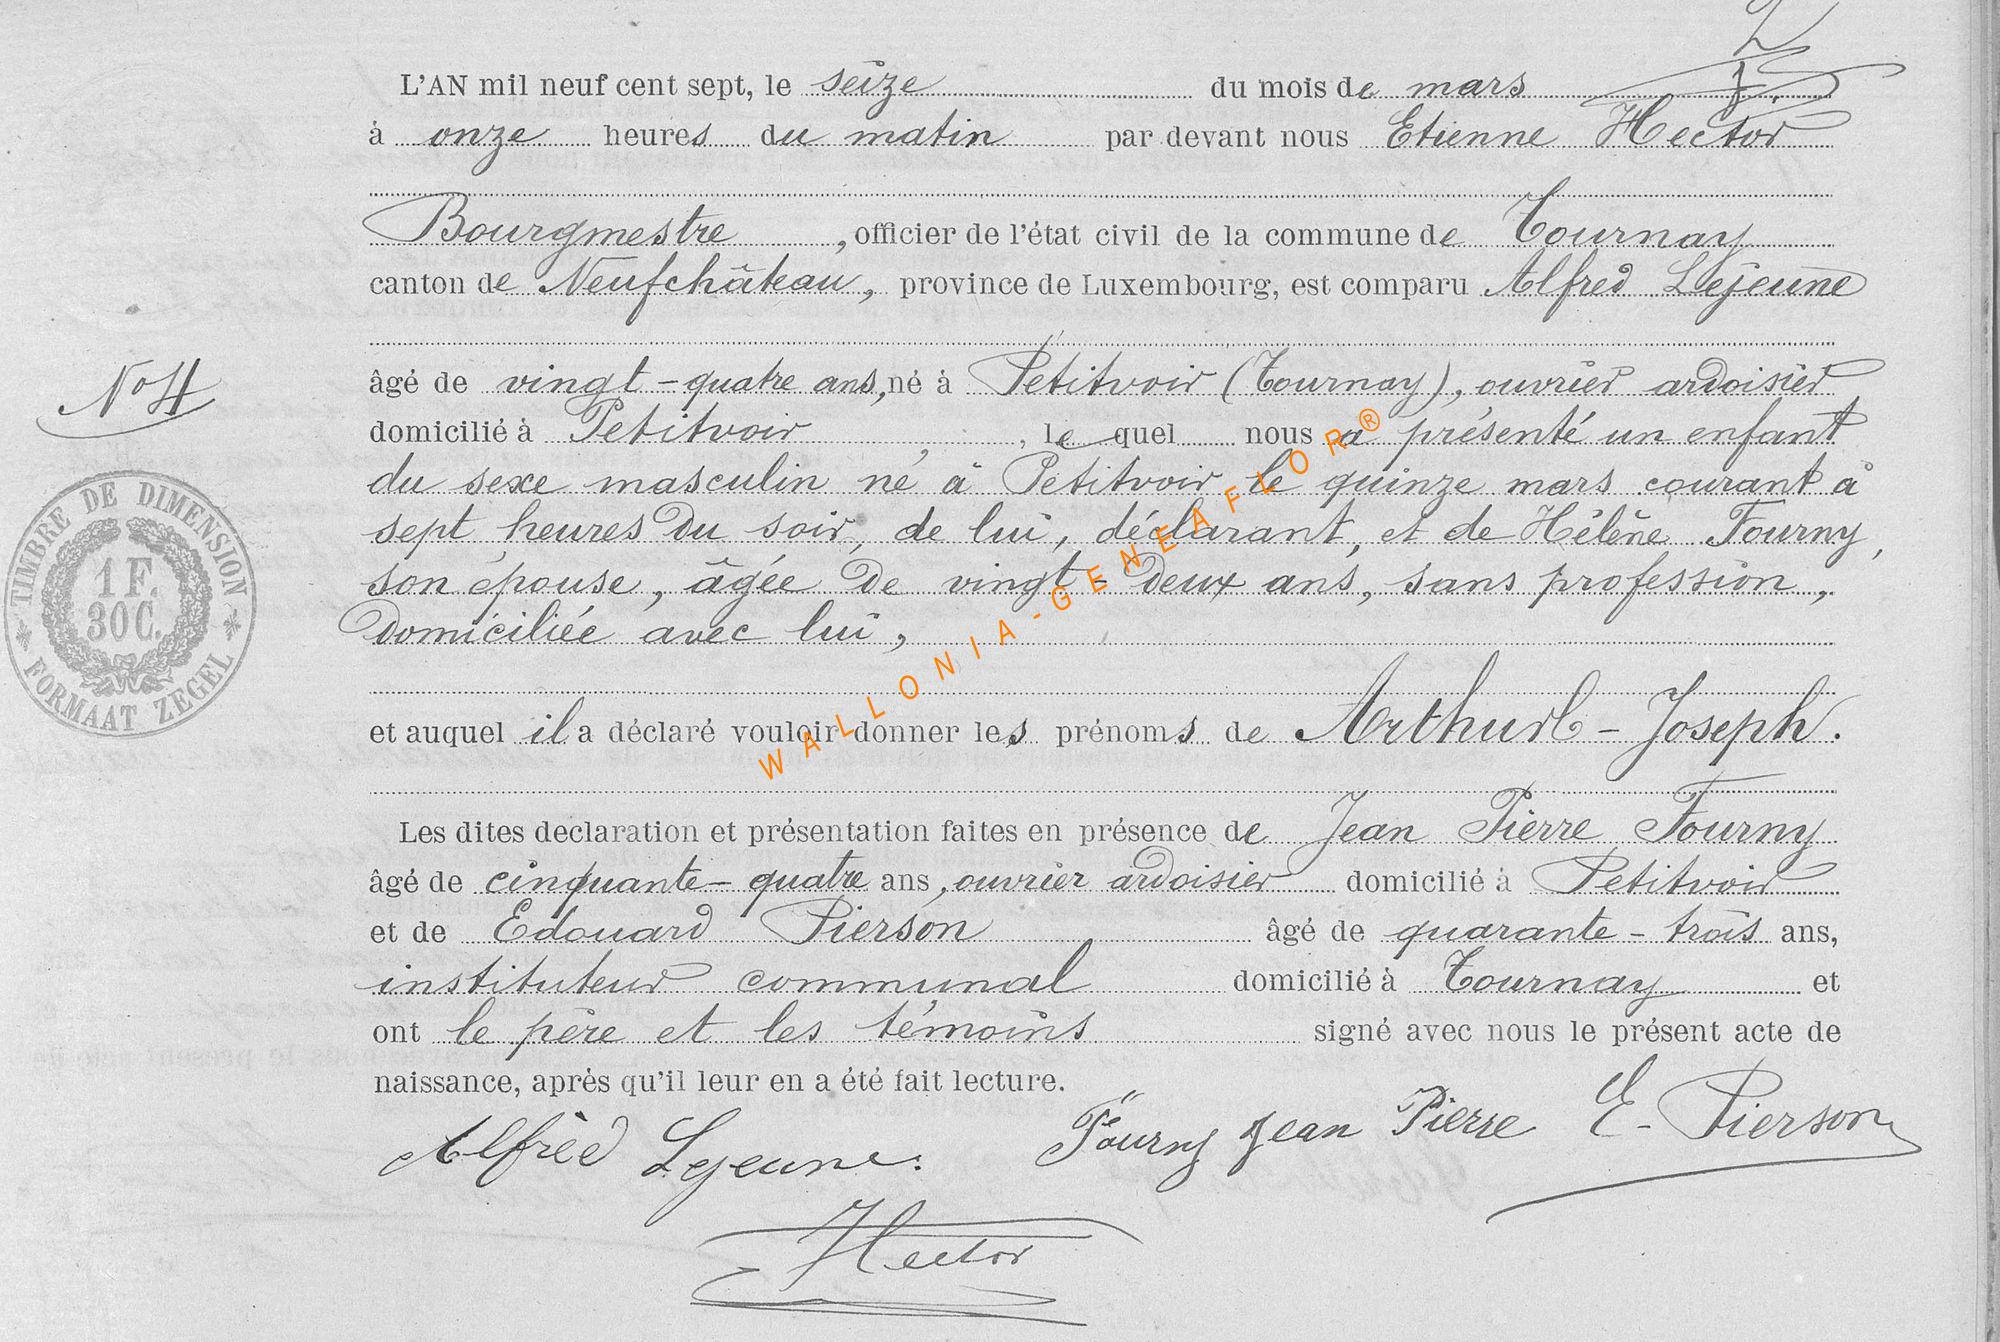 L'AN mil neuf cent sept, le seize du mois de mars
à onze heures du matin par devant nous Etienne Hector
Bourgmestre, officier de l'état civil de la commune de Tournay
canton de Neufchâteau, province de Luxembourg, est comparu Alfred Lejeune
âgé de vingt-quatre ans, né à Petitvoir (Tournay), ouvrier ardoisier
N° 4
domicilié à Petitvoir, le quel nous a présenté un enfant
du sexe masculin né à Petitvoir le quinze mars courant à
sept heures du soir, de lui, déclarant, et de Hélène Fourny,
son épouse, âgée de vingt-deux ans, sans profession,
domiciliée avec lui,
TIMBRE DE DIMENSION
1 F.
30 C.
FORMAAT ZEGEL
et auquel il a déclaré vouloir donner les prénoms de Arthur - Joseph.
WALLONIA-GENEAFLOR®
Les dites declaration et présentation faites en présence de Jean Pierre Fourny
âgé de cinquante-quatre ans, ouvrier ardoisier domicilié à Petitvoir
et de Edouard Pierson âgé de quarante-trois ans,
instituteur communal domicilié à Tournay et
ont le père et les témoins signé avec nous le présent acte de
naissance, après qu'il leur en a été fait lecture.
Alfred Lejeune. Fourny Jean Pierre E. Pierson
Hector